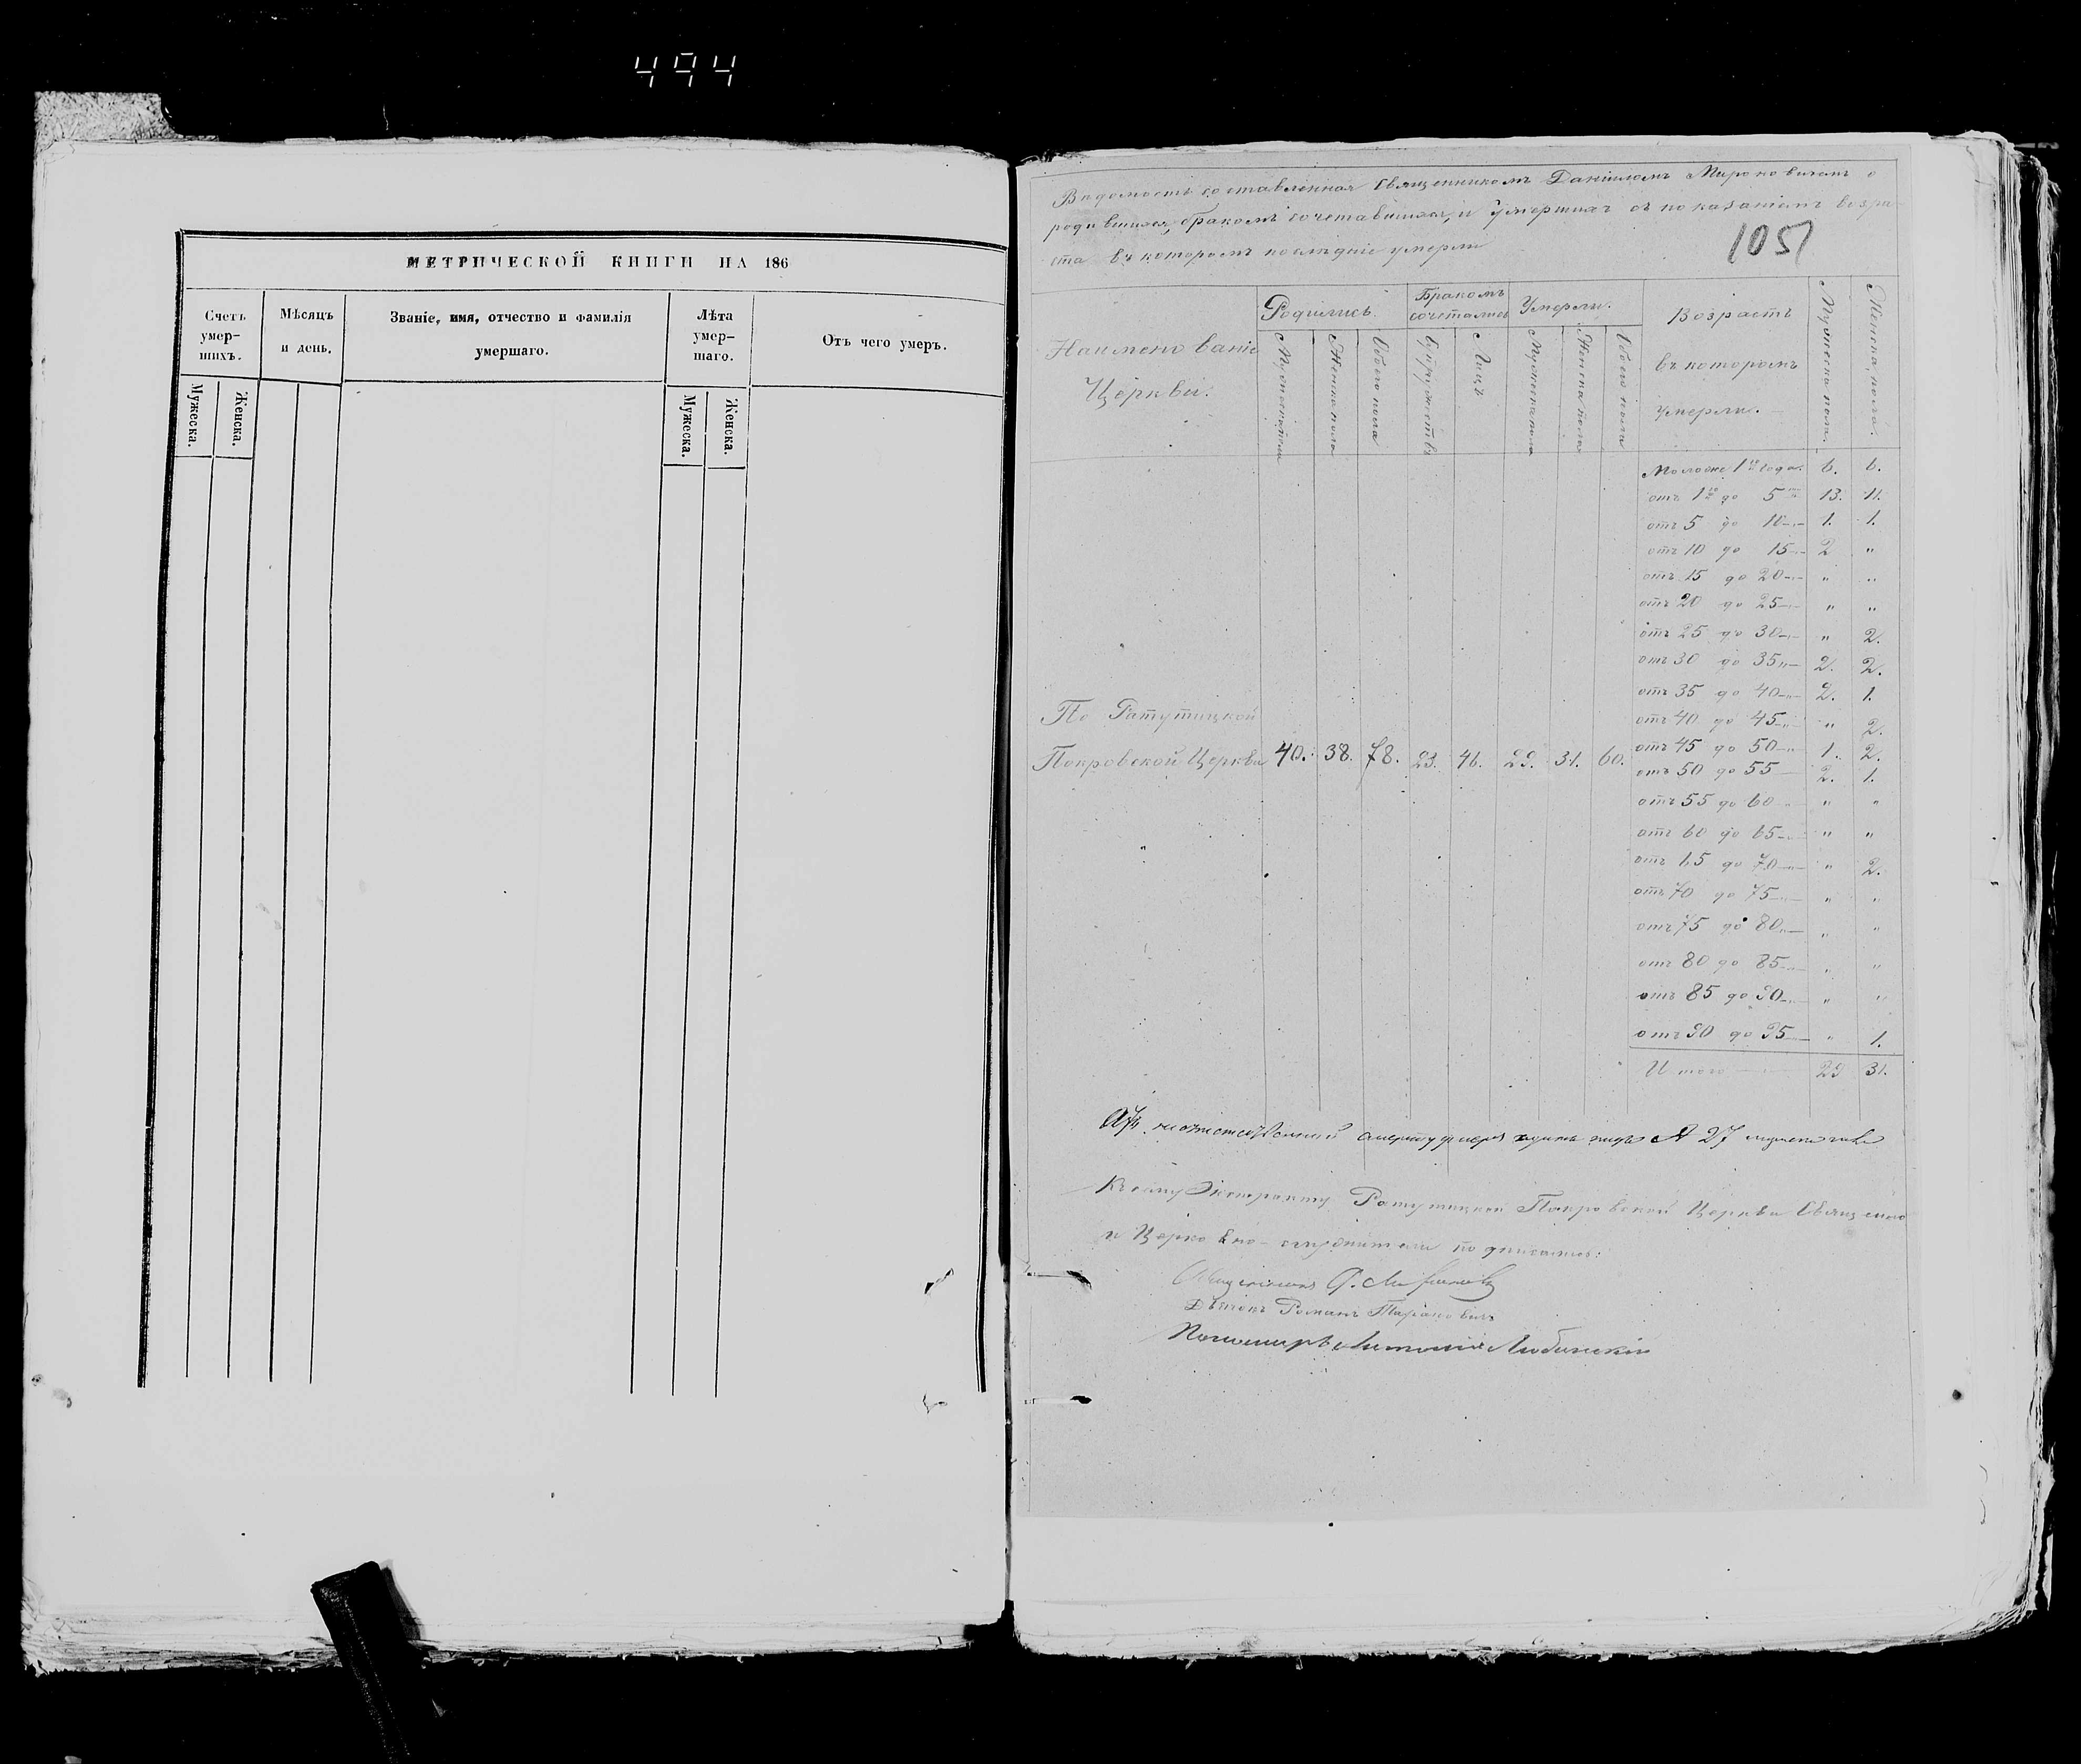 494
МЕТРИЧЕСКОЙ КНИГИ НА 186
Счетъ умер-шихъ.
Мѣсяцъ и день.
Званіе, имя, отчество и фамилія умершаго.
Лѣта умер-шаго.
Отъ чего умеръ.
Мужеска.
Женска.
Мужеска.
Женска.
Ведомость составленная Священникомъ Даніиломъ Мироновичемъ о
родившихся, бракомъ сочетавшихся, и умершихъ съ показаніемъ возра-
ста въ которомъ послѣдніе умерли
1051
Наименованіе Церкви.
Родились.
Бракомъ сочетались
Умерли.
Возрастъ въ которомъ умерли.
Мужеска пола.
Женска пола.
Мужеска пола
Женска пола
Обоего пола
Супружествъ
Лицъ
Мужеска пола
Женска пола
Обоего пола
Моложе 1го года. 6. 6.
отъ 1го до 5ти 13. 11.
отъ 5 до 10-"- 1. 1.
отъ 10 до 15-"- 2 "
отъ 15 до 20-"- " "
отъ 20 до 25-"- " "
отъ 25 до 30-"- " 2.
отъ 30 до 35"- 2. 2.
отъ 35 до 40-"- 2. 1.
отъ 40 до 45-"- " 2.
отъ 45 до 50-"- 1. 2.
отъ 50 до 55 - 2. 1.
отъ 55 до 60 " "
отъ 60 до 65-"- " "
отъ 65 до 70-"- " 2.
отъ 70 до 75-"- " "
отъ 75 до 80"- " "
отъ 80 до 85-"- " "
отъ 85 до 90-"- " "
отъ 90 до 95- " 1.
Итого 29 31.
По Ратутицкой
Покровской Церкви 40. 38. 78. 23. 46. 29. 31. 60.
27
Къ сему Экстракту Ратутицкой Покровской Церкви Священно
и Церковно-служители подписались:
Священникъ
Дьячокъ Романъ Тарановичъ
Пономарь Антоній Любинскій